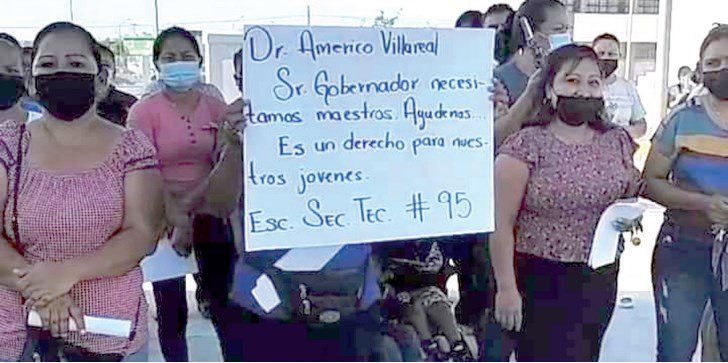 Dr. Americo Villareal
Sr. Gobernador necesi-
tamos maestros. Ayudenos....
Es un derecho para nues-
tros jovenes.
Esc. Sec. Tec. # 95